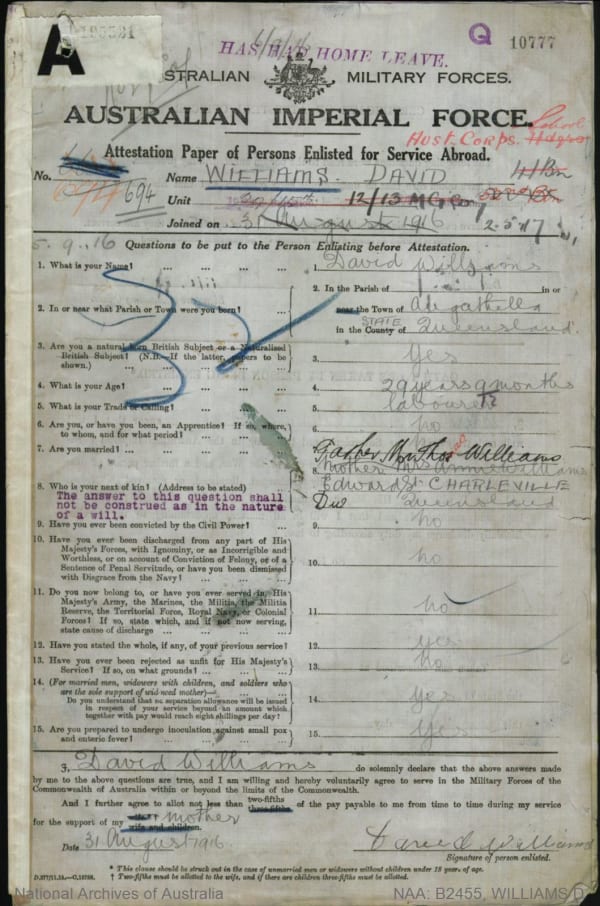 A
HAS HAD HOME LEAVE.
Q 10777
AUSTRALIAN MILITARY FORCES.
AUSTRALIAN IMPERIAL FORCE.
Aust. Corps. School
Attestation Paper of Persons Enlisted for Service Abroad.
No. 694 Name WILLIAMS. DAVID 41 Bn
Unit 12/13 M G Coy
Joined on 31 August 1916 2.5.17
5.9.16 Questions to be put to the Person Enlisting before Attestation.
1. What is your Name? ... 1. David Williams
2. In or near what Parish or Town were you born? ... 2. In the Parish of in or
near the Town of
in the County of STATE Queensland.
3. Are you a natural born British Subject or a Naturalised British Subject? (N.B.—If the latter, papers to be shown.) ... 3. Yes
4. What is your Age? ... 4. 29 years 9 months
5. What is your Trade or Calling? ... 5. labourer
6. Are you, or have you been, an Apprentice? If so, where, to whom, and for what period? ... 6. no
7. Are you married? ... 7.
Father Mr Thos Williams
8. Who is your next of kin? (Address to be stated) 8. Mother Mrs Annie Williams
The answer to this question shall not be construed as in the nature of a will.
Edward St CHARLEVILLE
Queensland
9. Have you ever been convicted by the Civil Power? 9. no
10. Have you ever been discharged from any part of His Majesty's Forces, with Ignominy, or as Incorrigible and Worthless, or on account of Conviction of Felony, or of a Sentence of Penal Servitude, or have you been dismissed with Disgrace from the Navy? ... 10. no
11. Do you now belong to, or have you ever served in, His Majesty's Army, the Marines, the Militia, the Militia Reserve, the Territorial Force, Royal Navy, or Colonial Forces? If so, state which, and if not now serving, state cause of discharge ... 11. no
12. Have you stated the whole, if any, of your previous service? 12. yes
13. Have you ever been rejected as unfit for His Majesty's Service? If so, on what grounds? ... 13. no
14. (For married men, widowers with children, and soldiers who are the sole support of widowed mother)—
Do you understand that no separation allowance will be issued in respect of your service beyond an amount which together with pay would reach eight shillings per day? 14. Yes
15. Are you prepared to undergo inoculation against small pox and enteric fever? ... 15. Yes
I, David Williams do solemnly declare that the above answers made
by me to the above questions are true, and I am willing and hereby voluntarily agree to serve in the Military Forces of the
Commonwealth of Australia within or beyond the limits of the Commonwealth.
And I further agree to allot not less than two-fifths three-fifths of the pay payable to me from time to time during my service
for the support of my wife mother
wife and children.
Date 31 August 1916 David Williams
Signature of person enlisted.
* This clause should be struck out in the case of unmarried men or widowers without children under 18 years of age.
† Two-fifths must be allotted to the wife, and if there are children three-fifths must be allotted.
National Archives of Australia NAA: B2455, WILLIAMS D